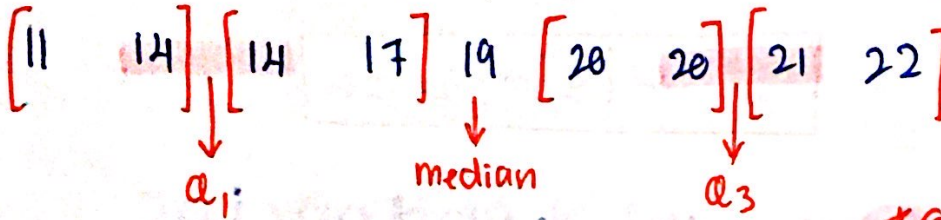 [11 14] [14 17] 19 [20 20] [21 22]
Q1 median Q3